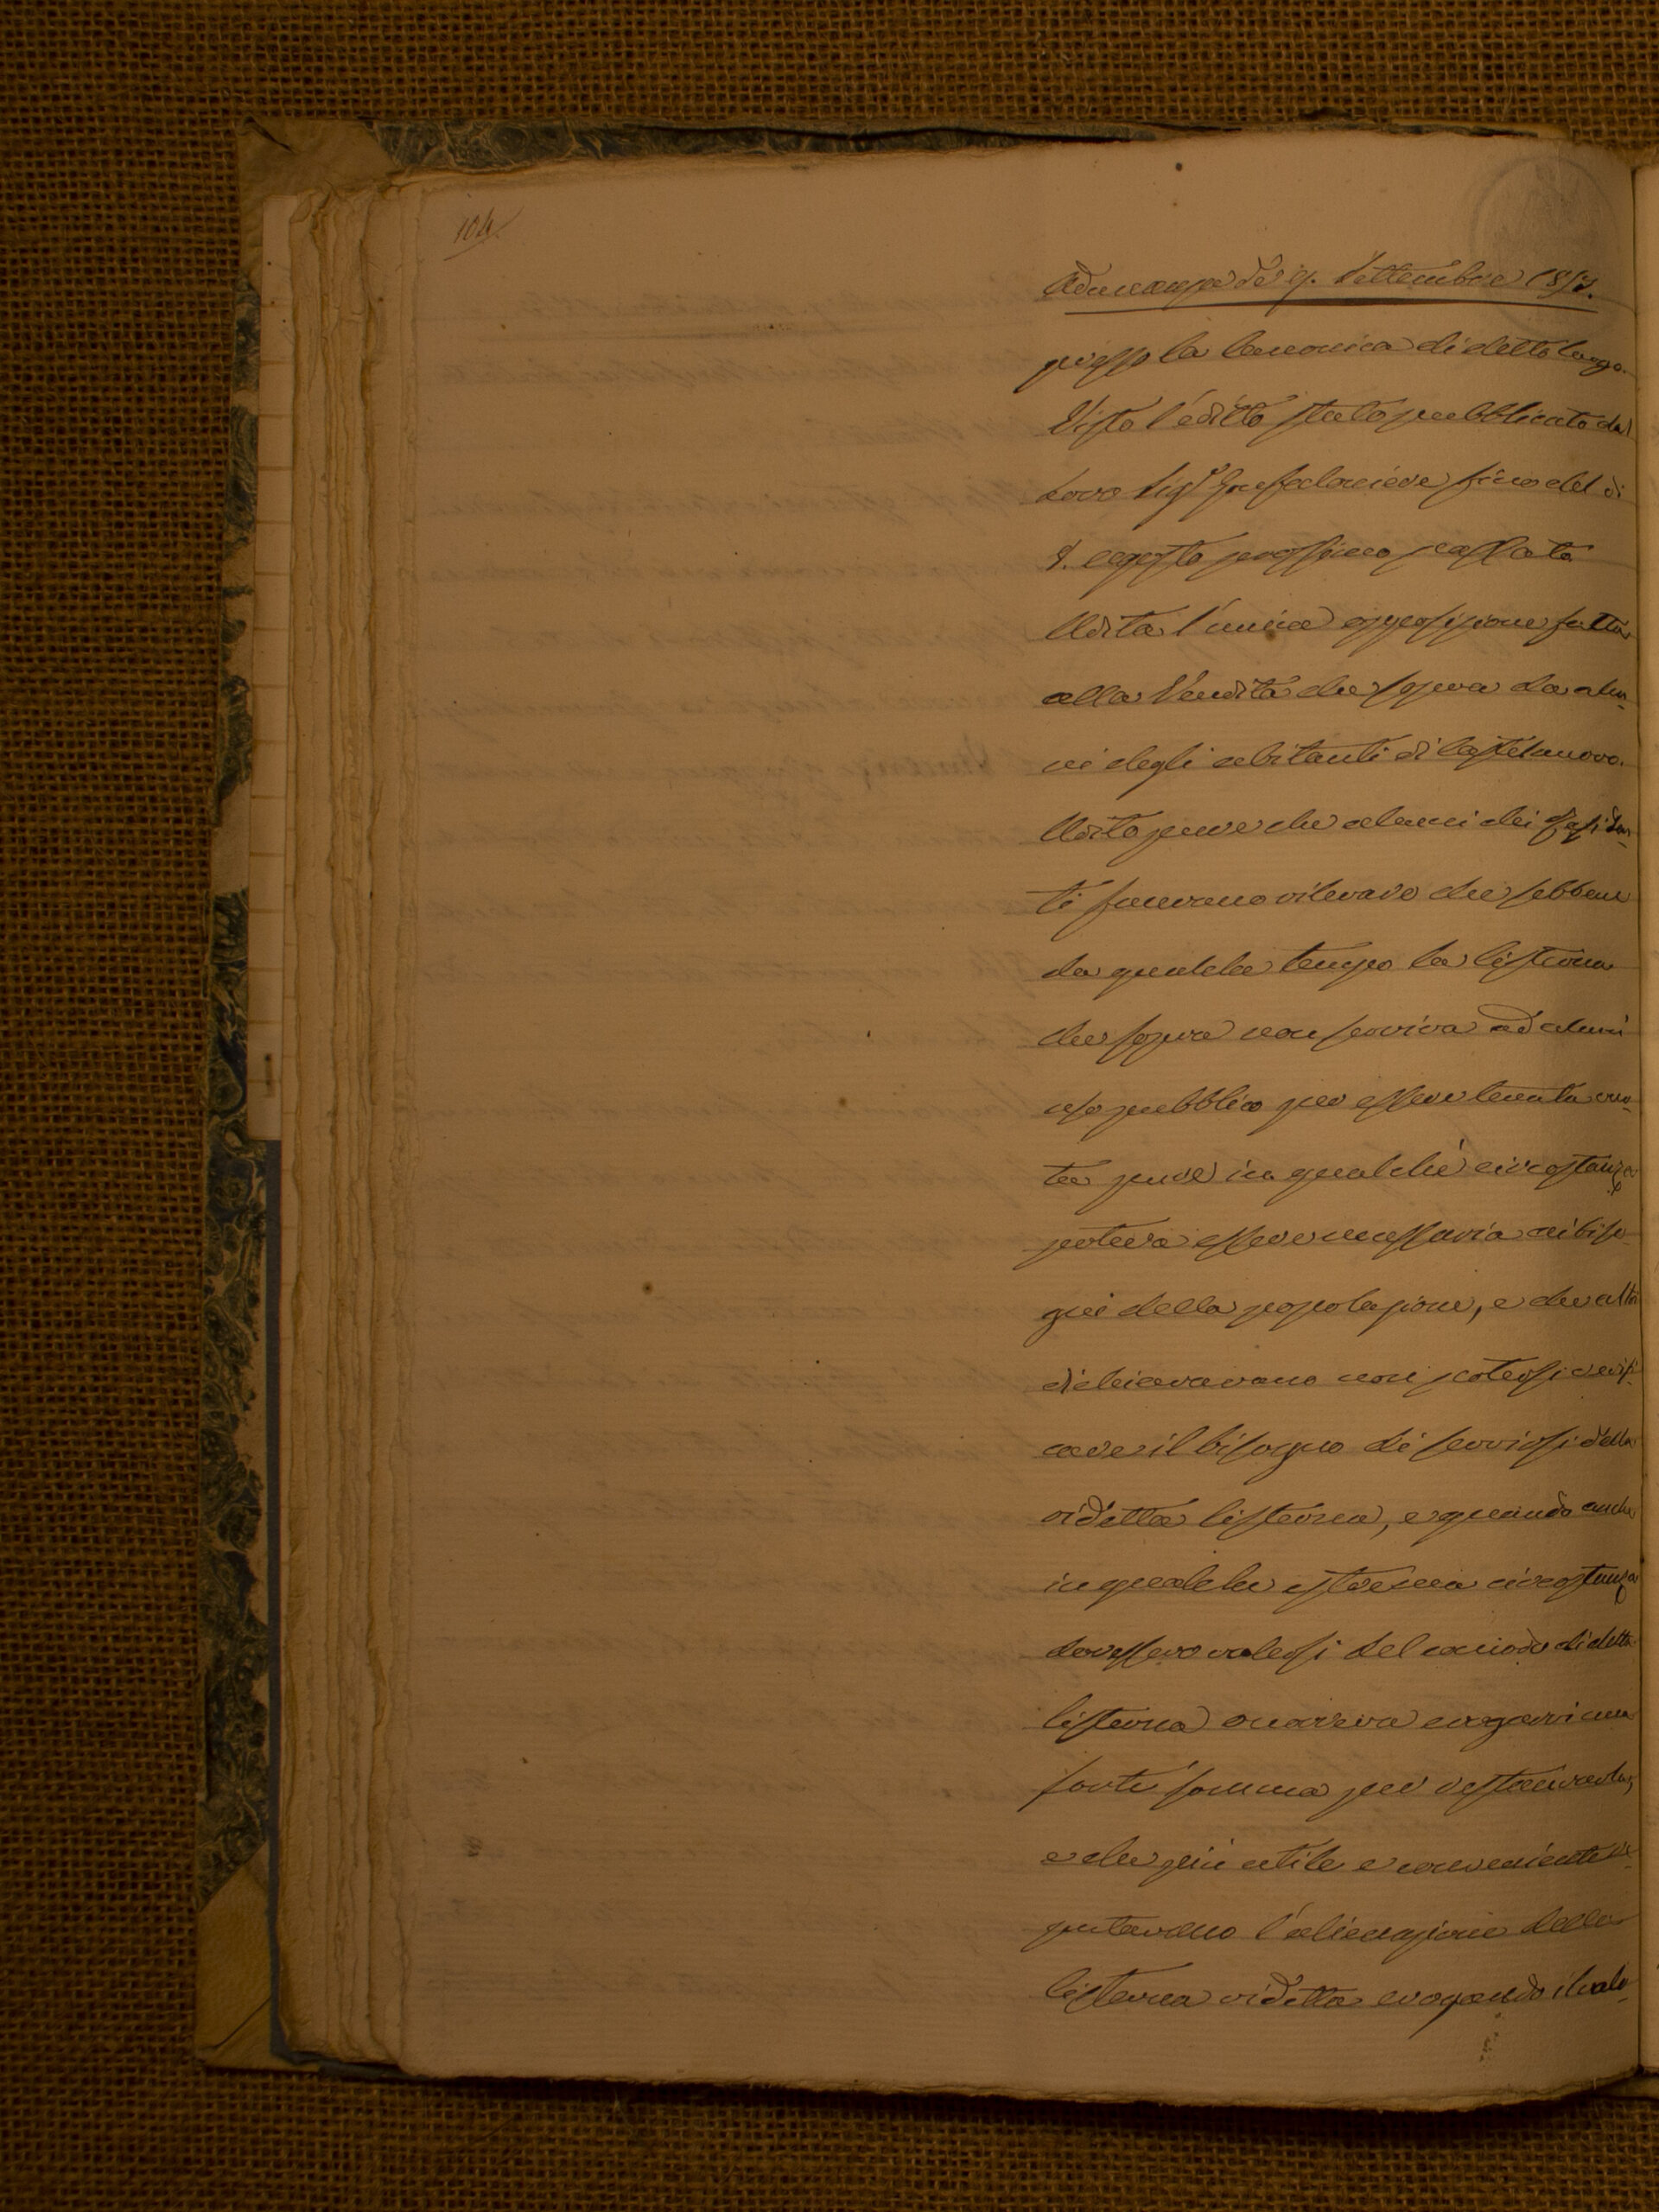 104
Adunanza de 9. Settembre 1857.
presso la Canonica di detto luogo.
Visto l'editto stato pubblicato dal
Loro Sigr Gonfaloniere fino del di
8. agosto prossimo passato
Udita l'unica opposizione fatta
alla Vendita che sopra da alcu-
ni degli abitanti di Castelnuovo.
Udito pure che alcuni dei Residen-
ti facevano rilevare che sebbene
da qualche tempo la Cisterna
che sopra non serviva ad alcun
uso pubblico per essere tenuta vuo-
ta pure in qualche circostanza
poteva essere necessaria ai biso-
gni della popolazione, e che altri
dichiaravano non potersi verifi-
care il bisogno di servirsi della
ridetta Cisterna, e quando anche
in qualche estrema circostanza
dovessero valersi del comodo di detta
Cisterna occorreva erogarvi una
forte somma per restaurarla,
e che più utile e conveniente re-
putavano l'alienazione della
Cisterna ridetta erogando il valo-